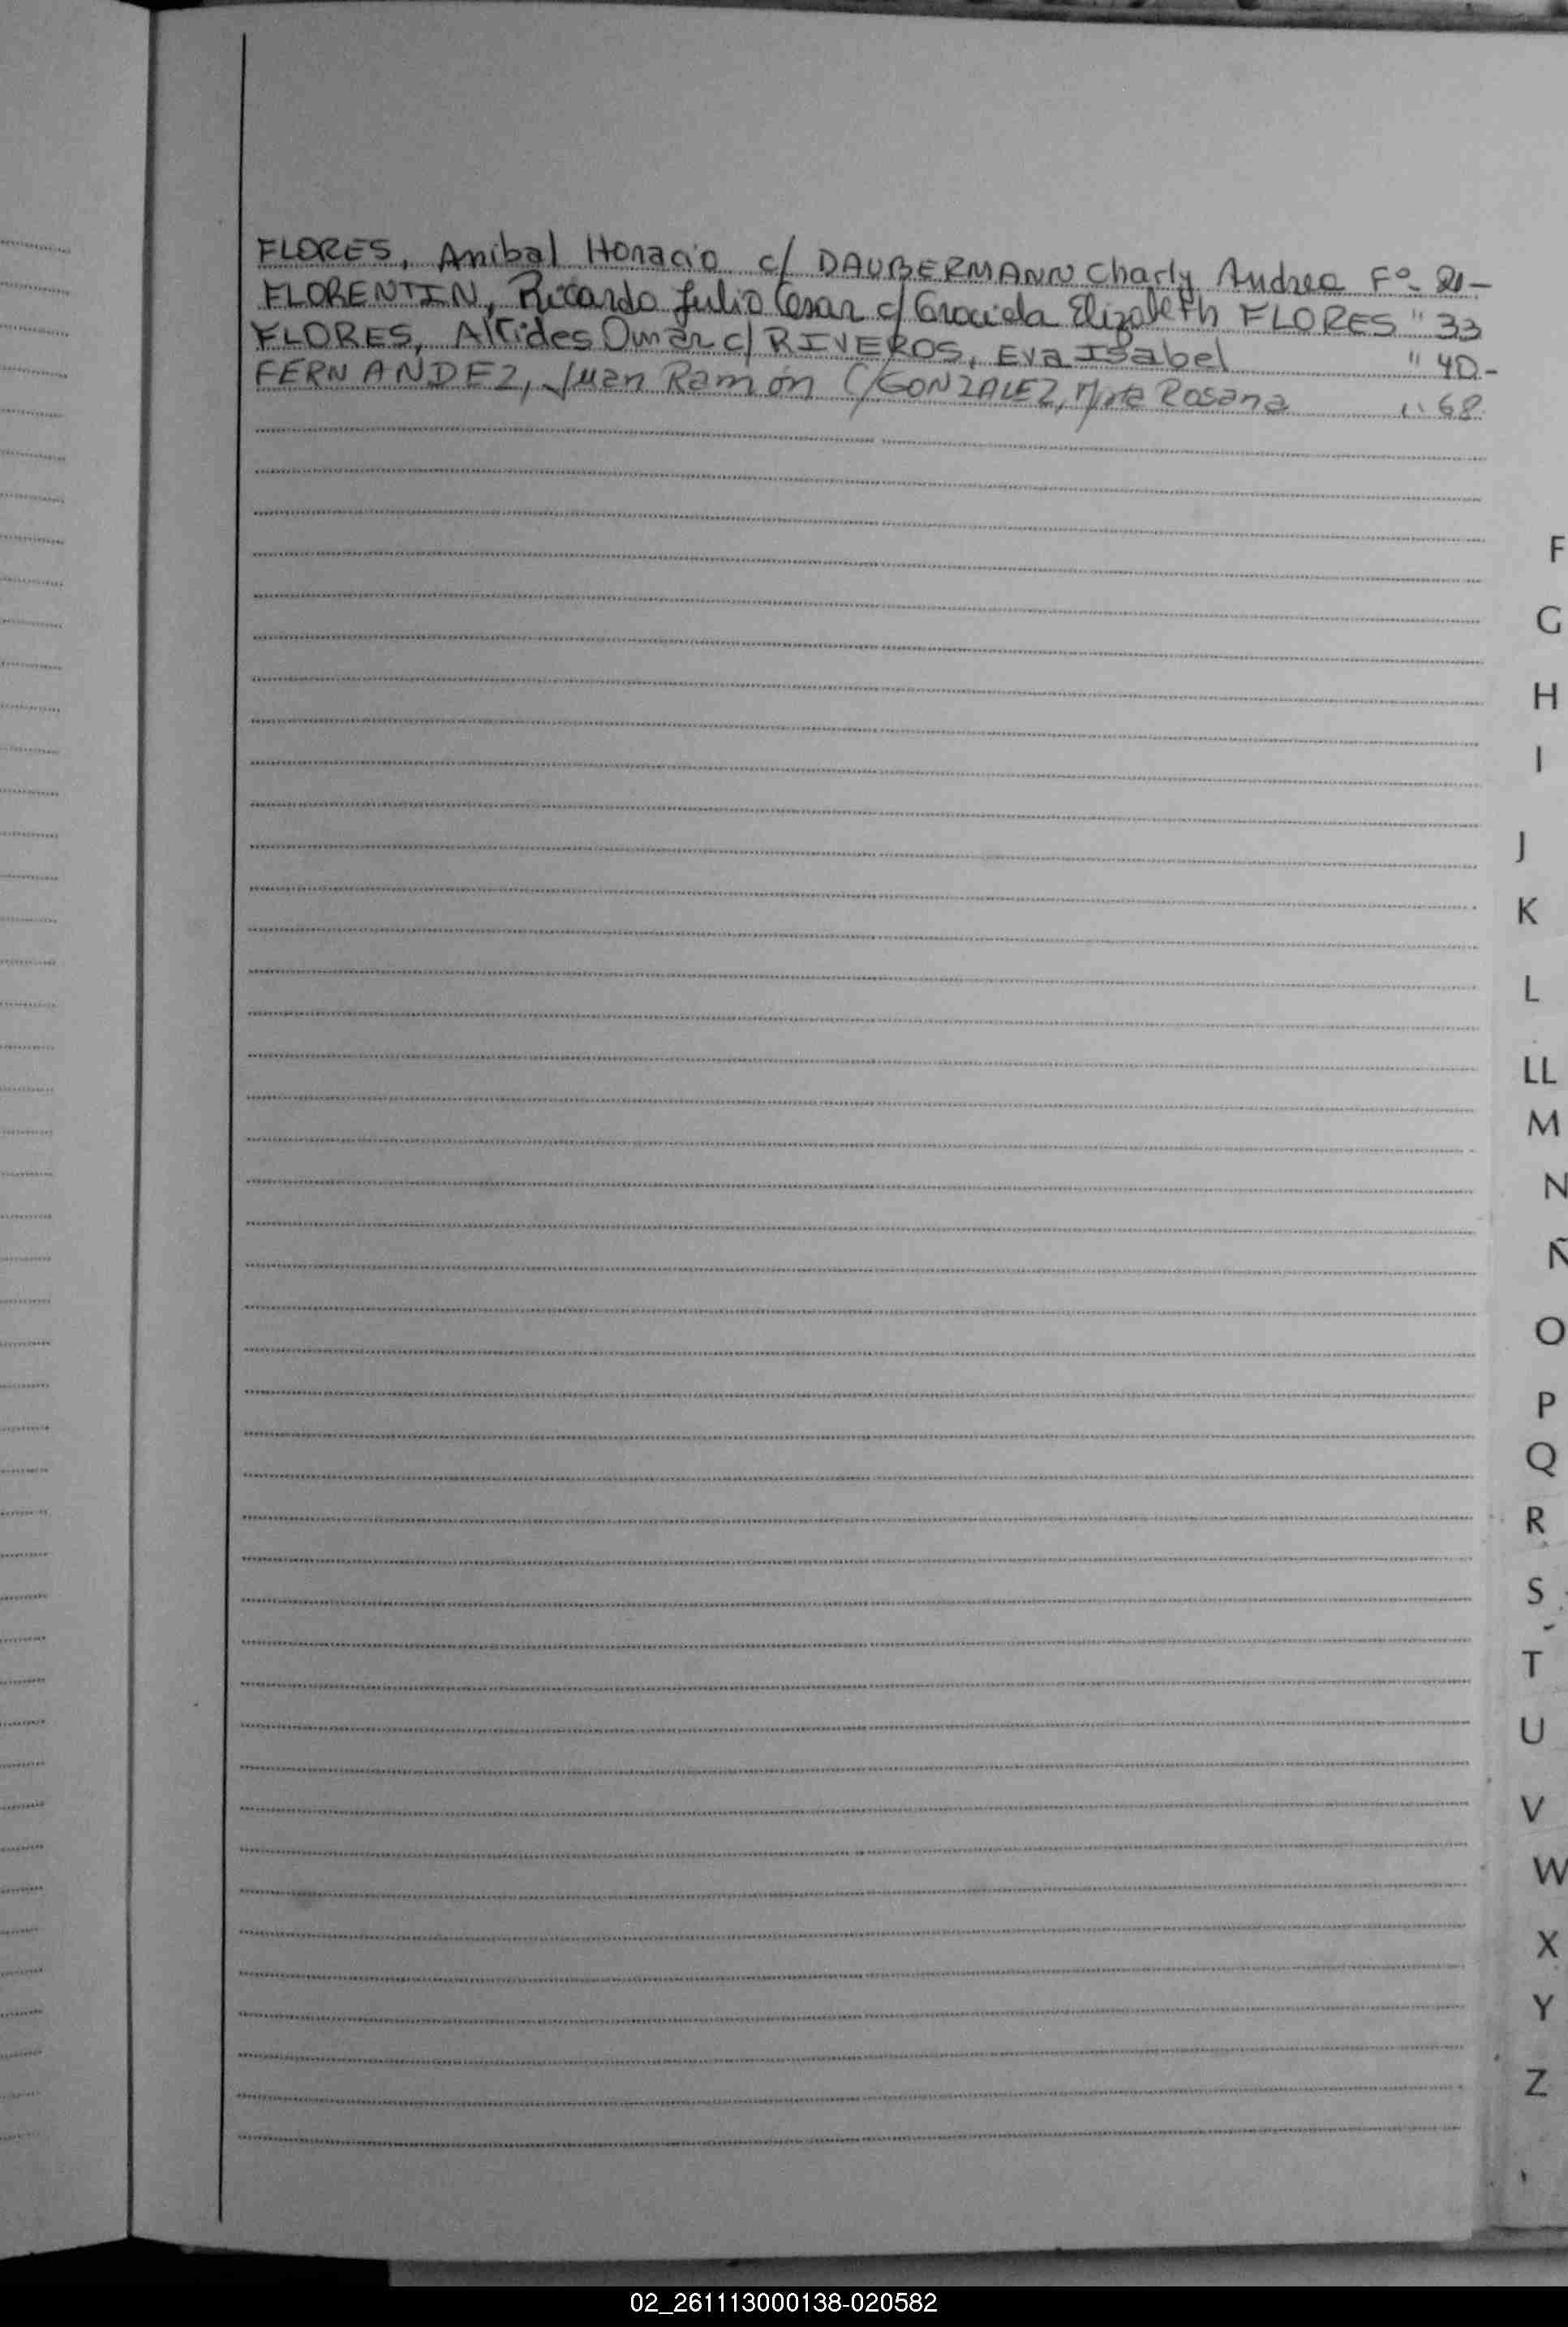 FLORES, Anibal Horacio c/ DAUBERMANN Charly Andrea Fº- 21-
FLORENTIN, Ricardo Julio Cesar c/ Graciela Elizabeth FLORES " 33
FLORES, Alcides Omar c/ RIVEROS, Eva Isabel " 40-
FERNANDEZ, Juan Ramón C/ GONZALEZ, Mirta Rosana " 68
F
G
H
I
J
K
L
LL
M
N
Ñ
O
P
Q
R
S
T
U
V
W
X
Y
Z
02_261113000138-020582